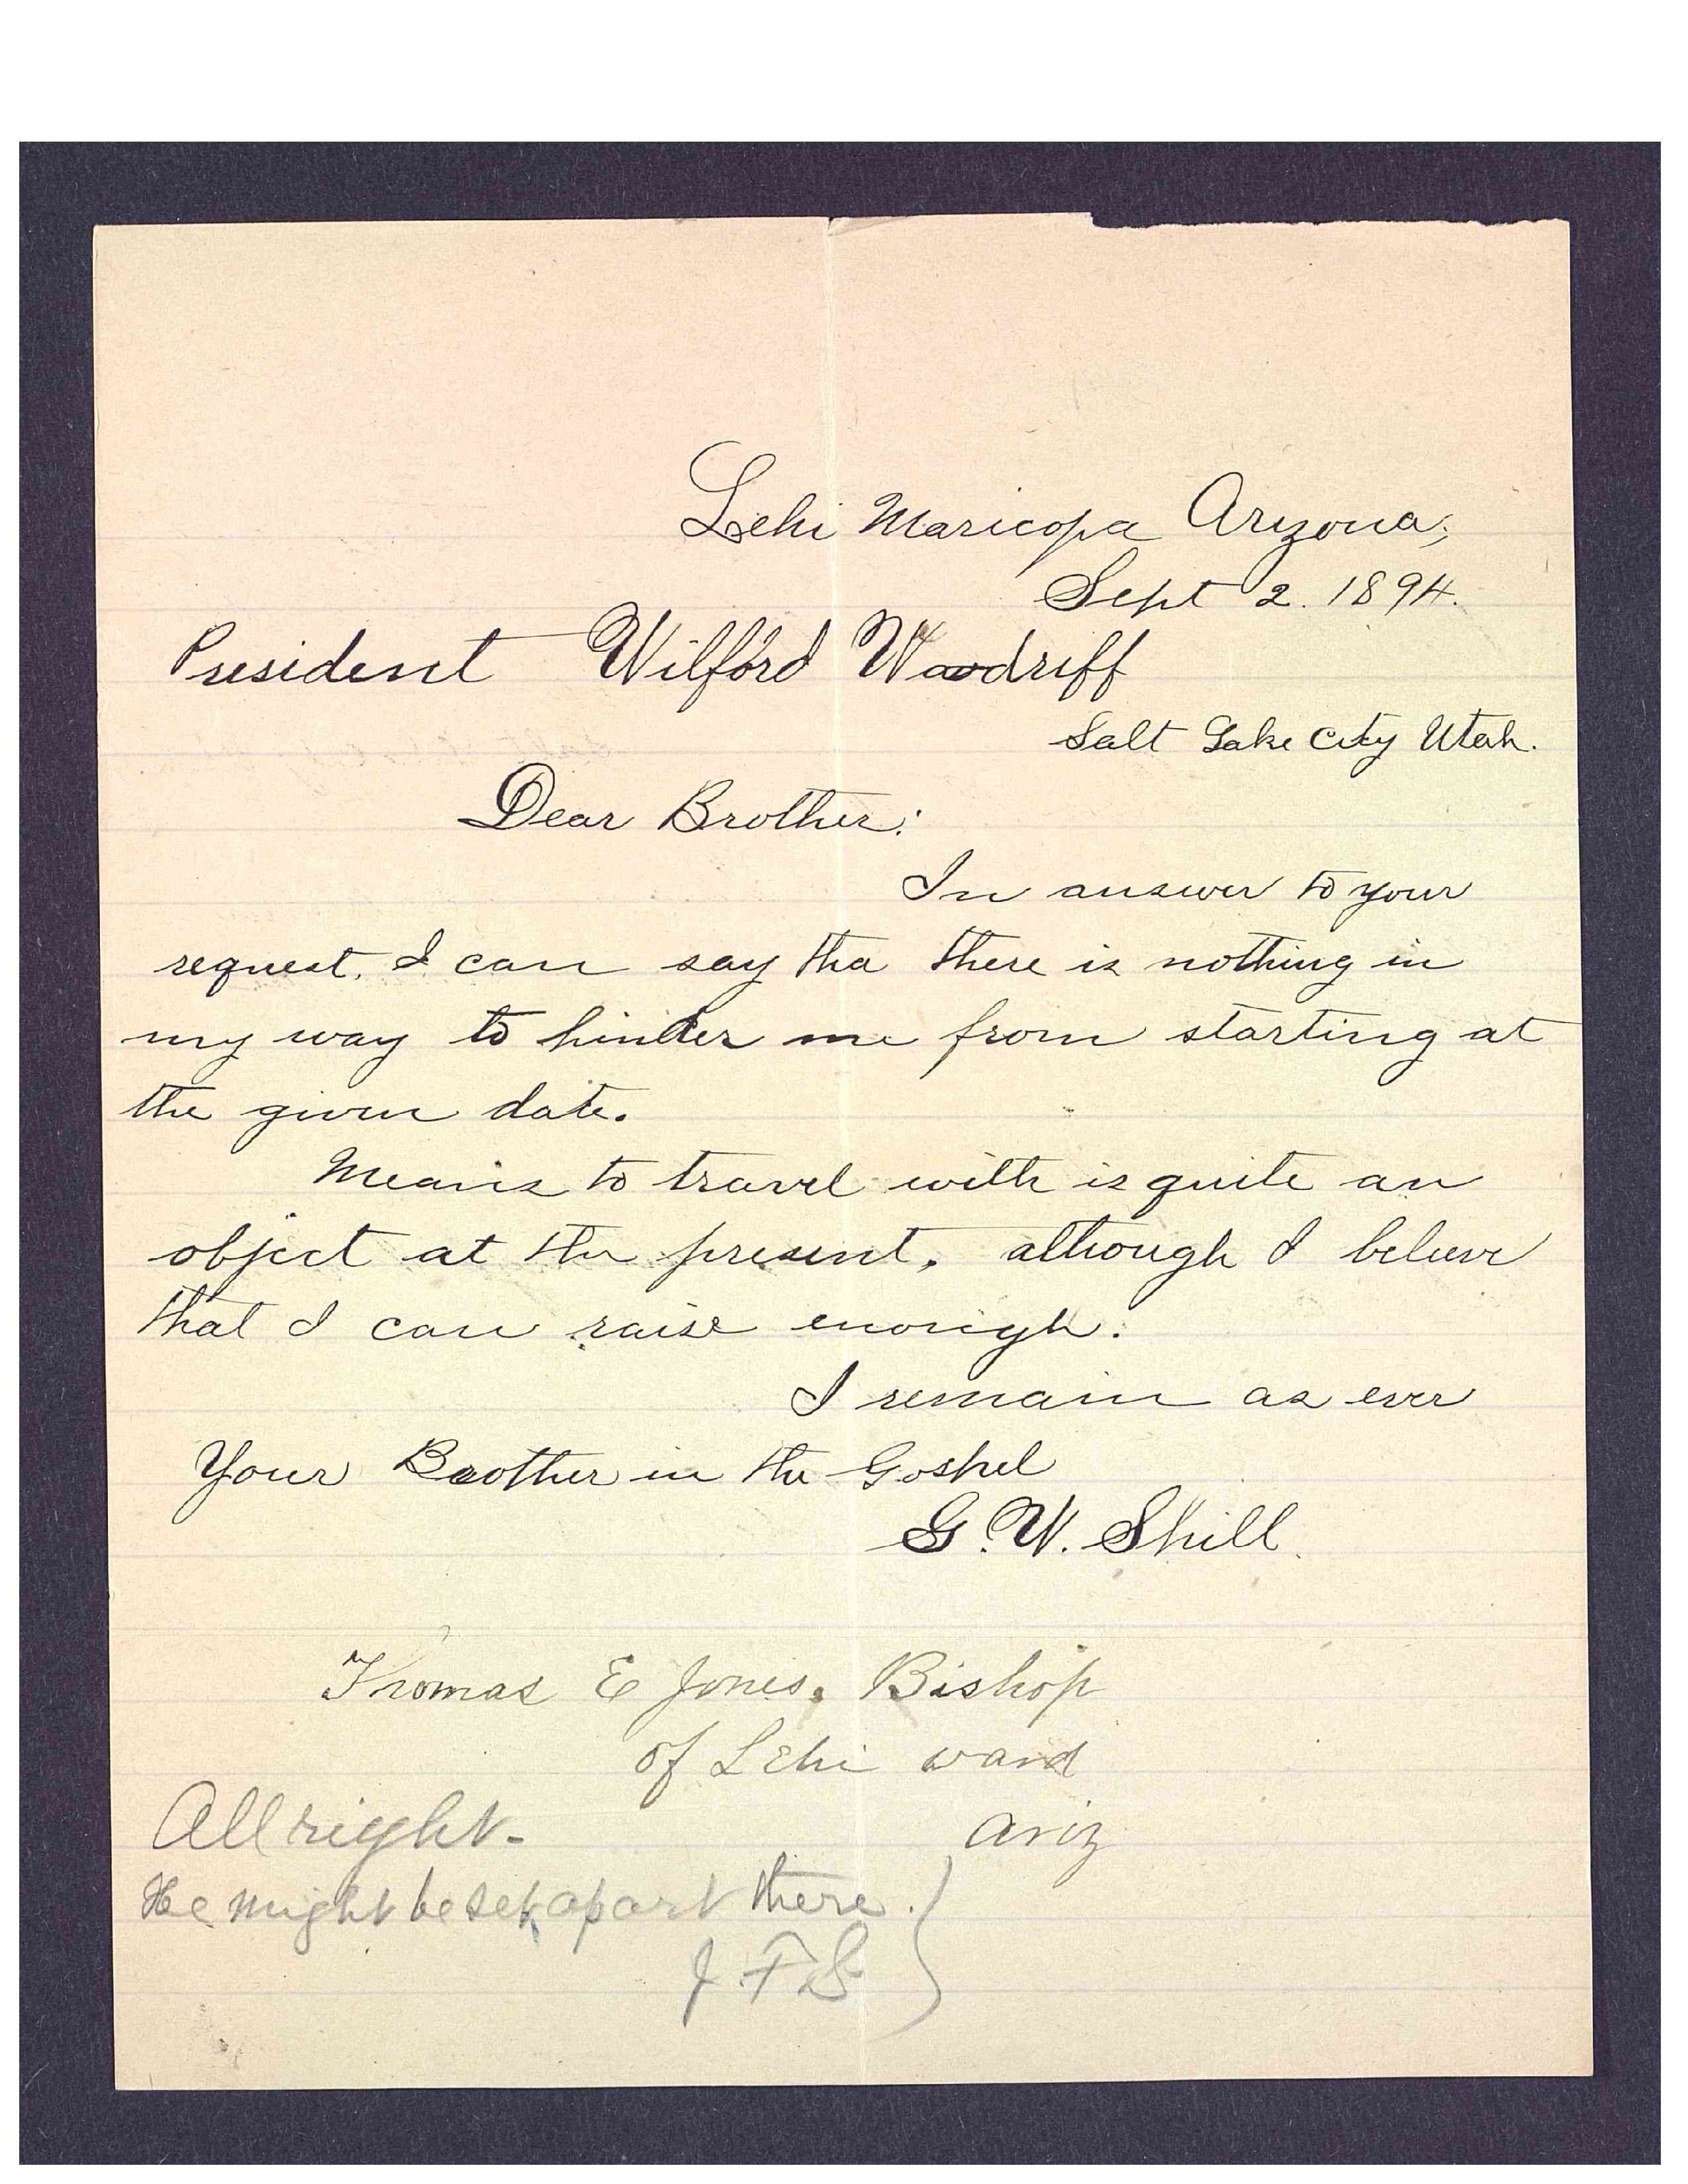 Lehi Maricopa Arizona,
Sept 2. 1894.
President Wilford Woodriff
Salt Lake City Utah.
Dear Brother:
In answer to your
request. I can say tha there is nothing in
my way to hinder me from starting at
the given date.
Means to travel with is quite an
object at the present, although I believe
that I can raise enough.
I remain as ever
Your Brother in the Gospel
G. W. Shill.
Thomas E Jones, Bishop
of Lehi ward
Ariz
All right.
He might be set apart there.
J. F. S.